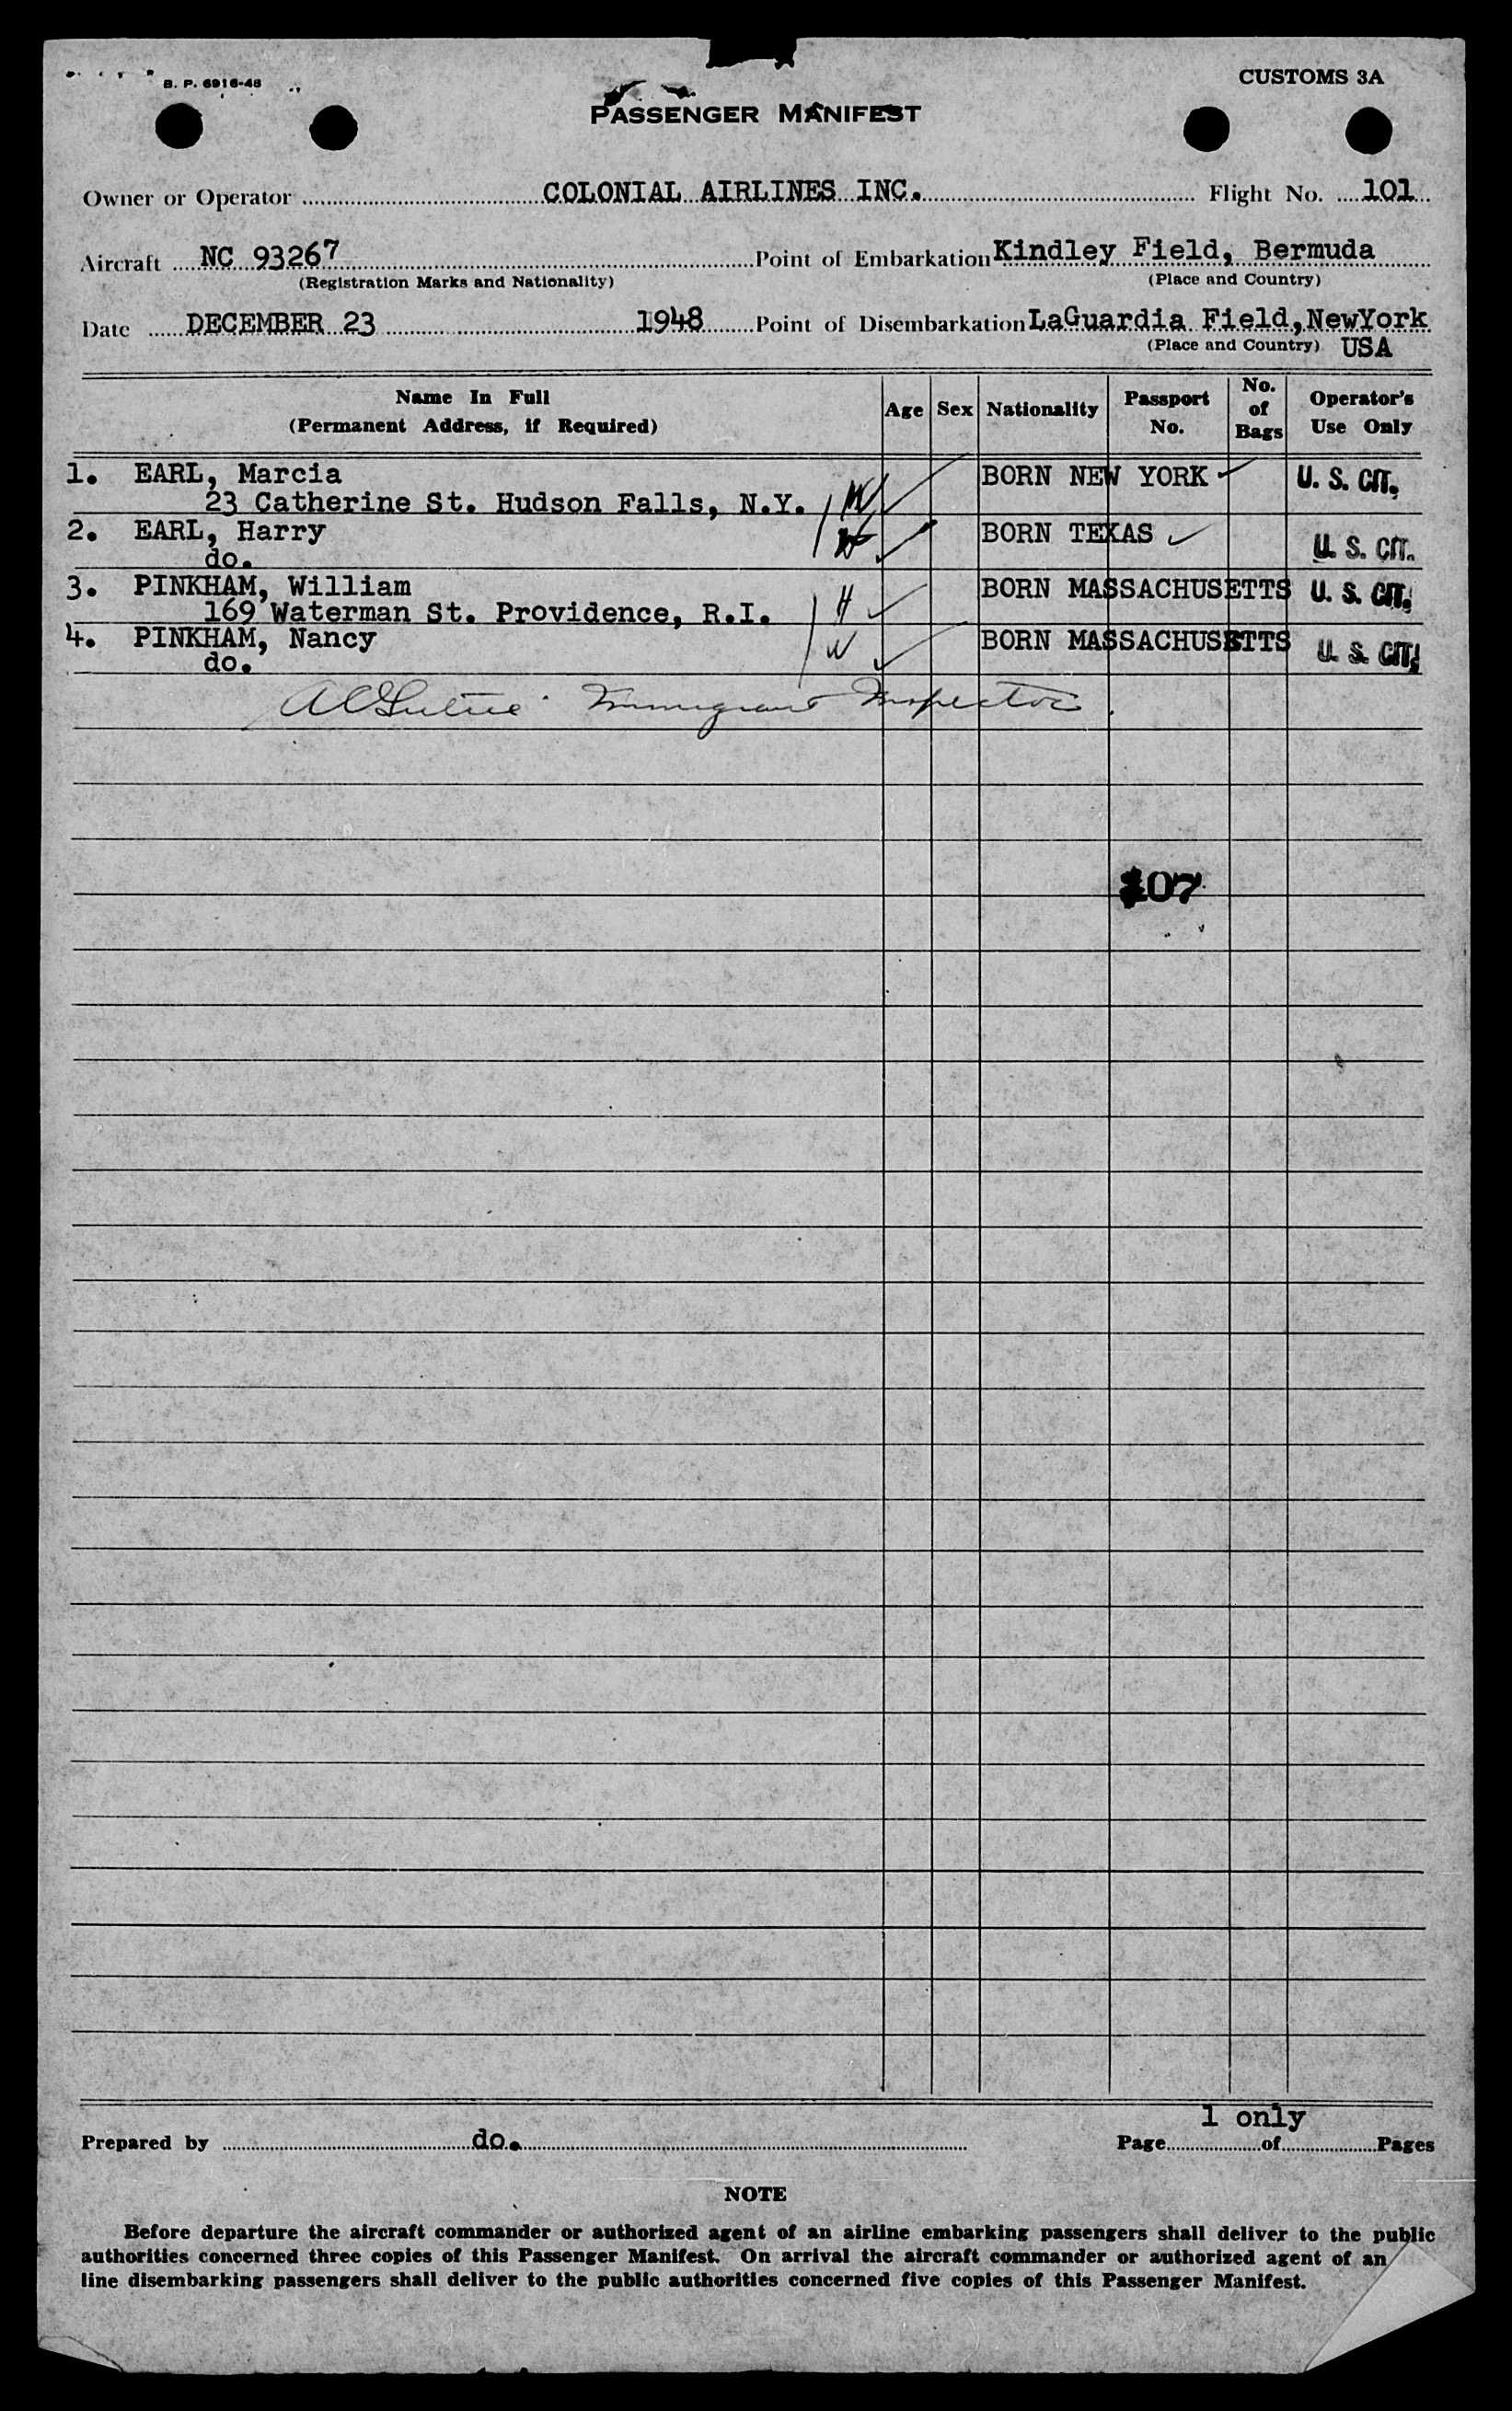 B. P. 6916-48
CUSTOMS 3A
PASSENGER MANIFEST
Owner or Operator COLONIAL AIRLINES INC. Flight No. 101
Aircraft NC 93267 Point of Embarkation Kindley Field, Bermuda
(Registration Marks and Nationality) (Place and Country)
Date DECEMBER 23 1948 Point of Disembarkation LaGuardia Field, NewYork
(Place and Country) USA
Name In Full
(Permanent Address, if Required)
Age Sex Nationality Passport No. No. of Bags Operator's Use Only
1. EARL, Marcia BORN NEW YORK U. S. CIT.
23 Catherine St. Hudson Falls, N.Y. W
2. EARL, Harry BORN TEXAS U. S. CIT.
do.
3. PINKHAM, William H BORN MASSACHUSETTS U. S. CIT.
169 Waterman St. Providence, R.I.
4. PINKHAM, Nancy W BORN MASSACHUSETTS U. S. CIT.
do.
Immigrant Inspector
107
1 only
Prepared by do. Page of Pages
NOTE
Before departure the aircraft commander or authorized agent of an airline embarking passengers shall deliver to the public
authorities concerned three copies of this Passenger Manifest. On arrival the aircraft commander or authorized agent of an
line disembarking passengers shall deliver to the public authorities concerned five copies of this Passenger Manifest.